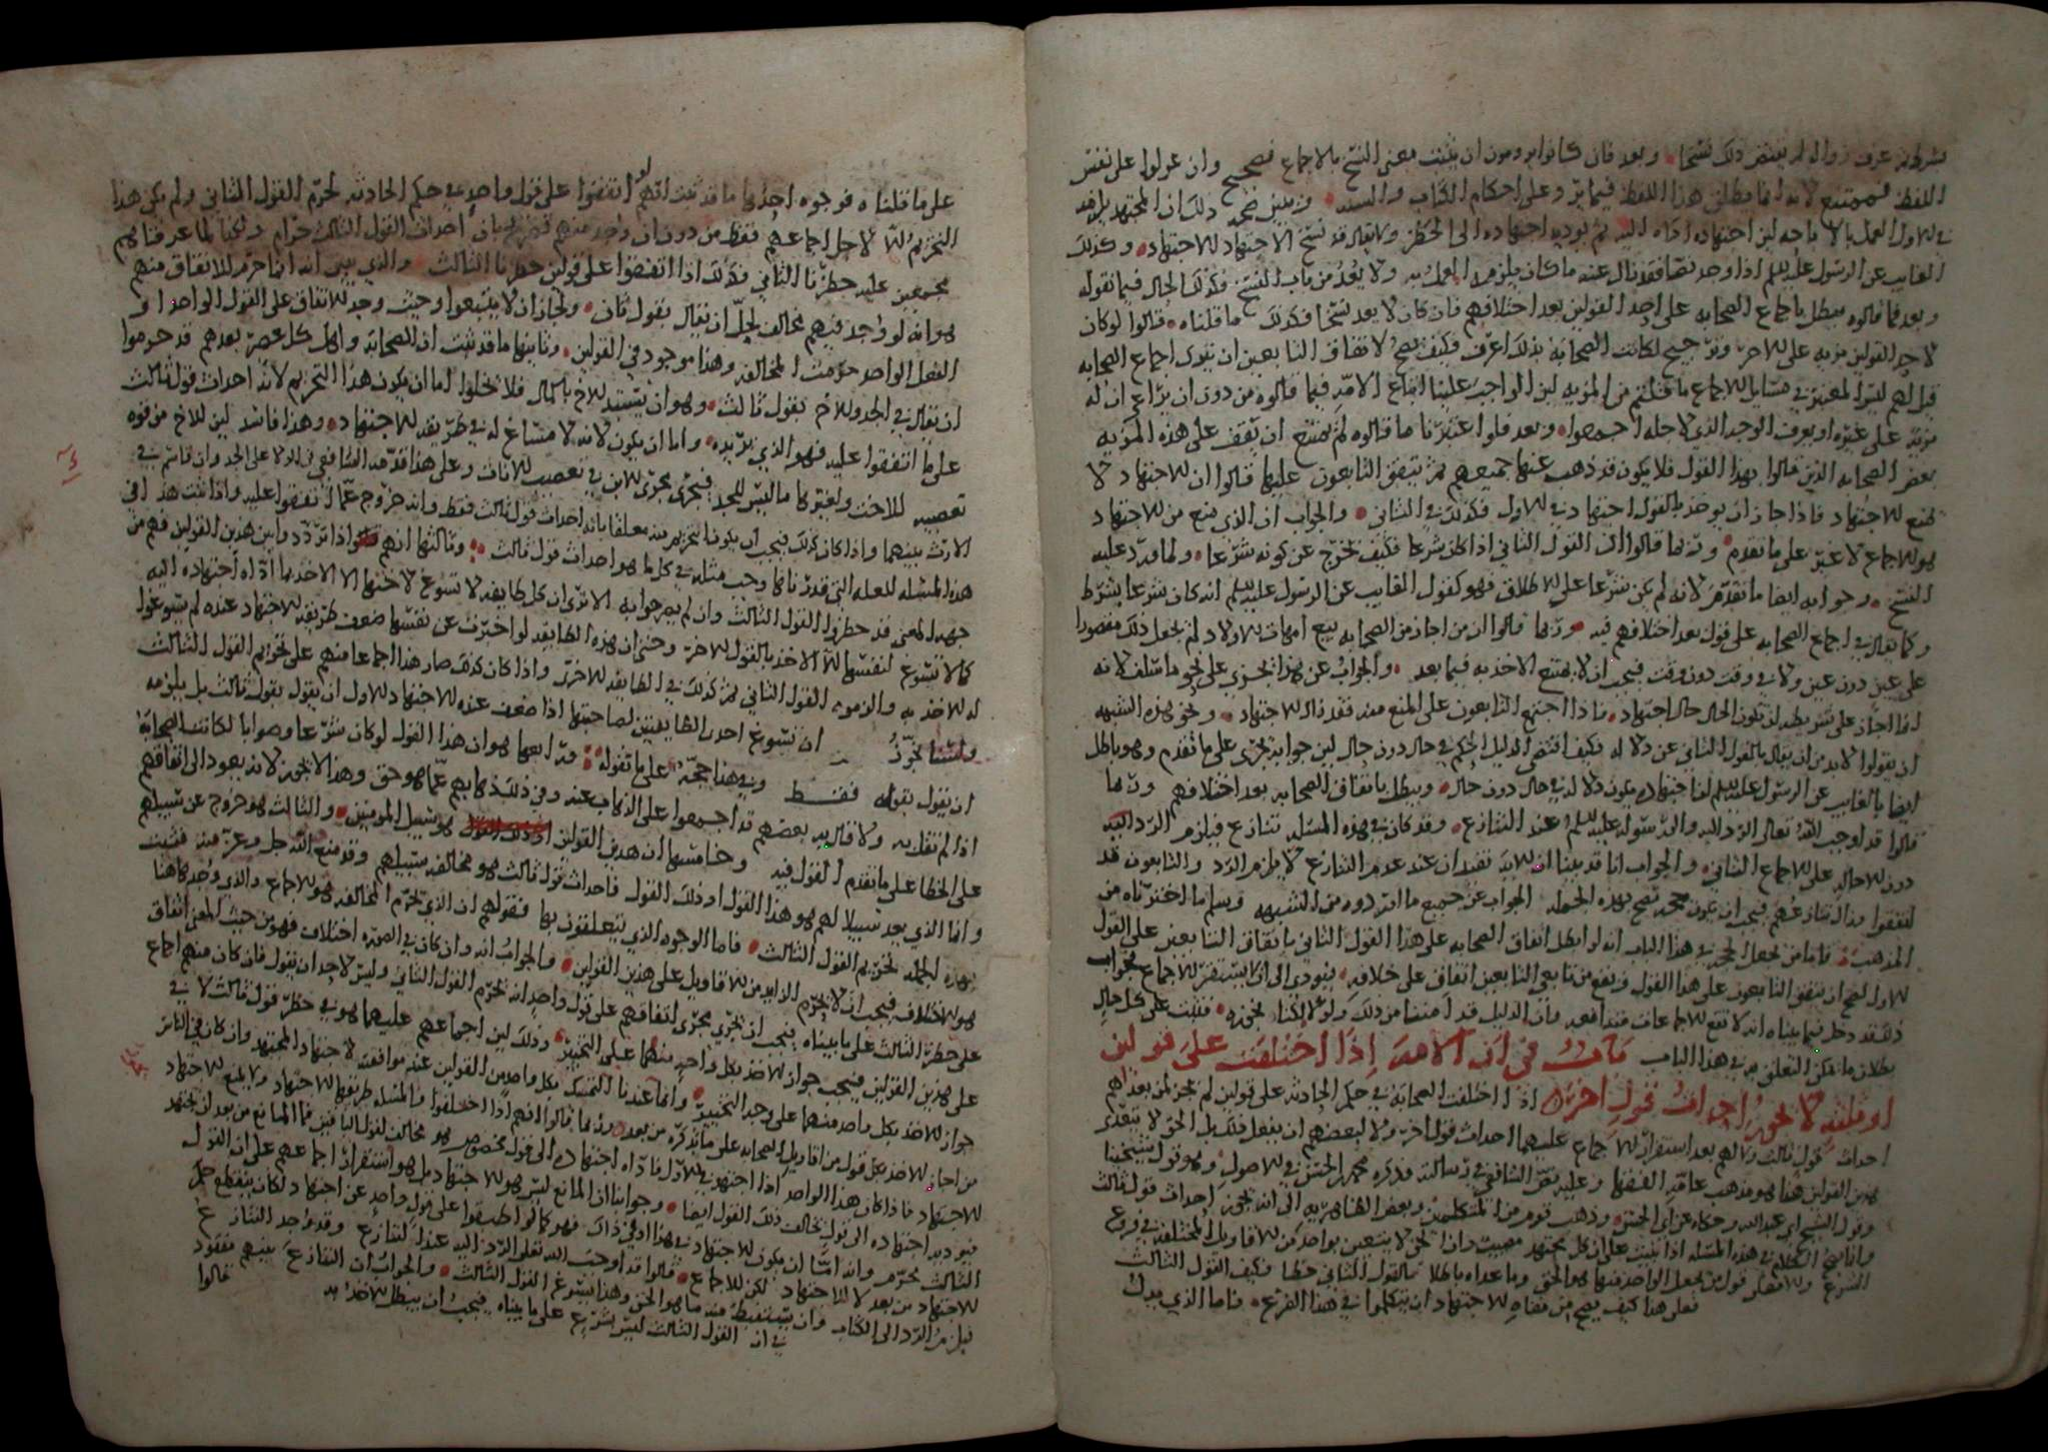 بشرط عرف زواله لم يقتض ذلك نسخا وبعد فان كانوا يرومون ان يثبت معنى النسخ بالاجماع فصحيح وان عولوا على نفس
اللفظ فممتنع لانه انما يطلق هذا اللفظ فيما يرد على احكام الكتاب والسنة ويبين صحة ذلك ان المجتهد يلزمه
في الاول العمل بالاباحه لان اجتهاده اداه اليه ثم يوديه اجتهاده الى الحظر ولا يقال قد نسخ الاجتهاد للاجتهاد وكذلك
الغايب عن الرسول عليه السلم اذا وجد نصا فقد زال عنه ما كان يلزمه العمل به ولا يعد من باب النسخ فكذلك الحال فيما نقوله
وبعد فما قالوه يبطل باجماع الصحابه على احد القولين بعد اختلافهم فان كان لا يعد نسخا فكذلك ما قلناه قالوا لو كان
لاحد القولين مزيه على الاخر وترجيح لكانت الصحابة بذلك اعرف فكيف يصح لاتفاق التابعين ان يقوى اجماع الصحابه
قيل لهم ليس المعتبر في مسايل الاجماع ما ظننتم من المزيه بل الواجب علينا اتباع الامة فيما قالوه من دون ان يراعى ان له
مزية على غيره او يعرف الوجه الذي لاجله اجمعوا وبعد فلو اعتبرنا ما قالوه لم يمتنع ان يقف على هذه المزيه
بعض الصحابه الذين قالوا بهذا القول فلا يكون قد ذهب عنها جميعهم ثم يتفق التابعون عليها قالوا ان الاجتهاد لا
يمنع الاجتهاد فاذا جاز ان يوخذ بالقول اجتهادا في الاول فكذلك في الثاني والجواب ان الذي منع من الاجتهاد
هو الاجماع لا غير على ما تقدم وربما قالوا ان القول الثاني اذا كان شرعا فكيف يخرج عن كونه شرعا ولما مرد عليه
النسخ وجوابه ايضا ما تقدم لانه لم يكن شرعا على الاطلاق فهو كقول الغايب عن الرسول عليه السلم انه كان شرعا بشرط
وكما يقال في اجماع الصحابه على قول بعد اختلافهم فيه وربما قالوا ان من اجاز من الصحابه بيع امهات الاولاد لم يجعل ذلك مقصورا
على عين دون عين ولا في وقت دون وقت فيجب ان لا يمتنع الاخذ به فيما بعد والجواب عن هذا يجري على نحو ما سلف لانه
انما اجاز على شريطه ان تكون الحال حال اجتهاد فاذا اجتمع التابعون على المنع منه فقد زال الاجتهاد ونحو هذه الشبهه
ان يقولوا لا بد من ان يقال بالقول الثاني عن دلاله فكيف اقتضى الدليل الحكم في حال دون حال لان جوابه يجري على ما تقدم وهو باطل
ايضا بالغايب عن الرسول عليه السلم لان اجتهاده يكون دلاله في حال دون حال ويبطل باتفاق الصحابه بعد اختلافهم وربما
قالوا قد اوجب الله تعالى الرد اليه والى رسوله عليه السلم عند التنازع وقد كان في هذه المسئله تنازع فيلزم الرد اليه
دون الاحاله على الاجماع الثاني والجواب انا قد بينا ان الايه تفيد ان عند عدم التنازع لا يلزم الرد والتابعون قد
اتفقوا وزال تنازعهم فيجب ان يكون حجه تصح بهذه الجمله الجواب عن جميع ما اوردوه من الشبهه وسلم ما اخترناه من
المذهب فاما من يجعل الحجه في هذا الباب انه لو ابطل اتفاق الصحابه على هذا القول الثاني باتفاق التابعين على القول
الاول لصح ان يتفق التابعون على هذا القول ويقع من تابعي التابعين اتفاق على خلافه فيودي الى ان لا يستقر الاجماع فجواب
ذلك قد دخل فيما بيناه انه لا تقع الاجماعات متدافعه وان الدليل قد امننا من ذلك ولولا لكنا نجوزه فتثبت على كل حال
بطلان ما يمكن التعلق به في هذا الباب باب في ان الامه اذا اختلفت على قولين
او ثلثه لا يجوز احداث قول اخر اذا اختلفت الصحابه في حكم الحادثه على قولين لم يجز لمن بعدهم
احداث قول ثالث ولا لهم بعد استقرار الاجماع عليهما احداث قول اخر ولا لبعضهم ان يفعل ذلك بل الحق لا يتعدى
هذين القولين هذا هو مذهب عامة الفقها وعليه نص الشافعي في رسالته وذكره محمد بن الحسن في الاصول وهو قول شيخينا
وقول الشيخ ابي عبد الله وحكاه عن ابي الحسن وذهب قوم من المتكلمين وبعض الظاهريه الى انه يجوز احداث قول ثالث
وانما يصح الكلام في هذه المسئله اذا بنيت على ان كل مجتهد مصيب وان الحق لا يتعين بواحد من الاقاويل المختلفه في فروع
الشرع والا فعلى قول من يجعل الواحد منها هو الحق وما عداه باطلا فالقول الثاني خطا فكيف القول الثالث
فعلى هذا كيف يصح من نفاة الاجتهاد ان يتكلموا في هذا الفرع فاما الذي يدل
على ما قلناه فوجوه احدها ما قد ثبت انهم لو اتفقوا على قول واحد في حكم الحادثه لحرم القول الثاني ولم يكن هذا
التحريم الا لاجل اجماعهم فقط من دون ان واحد منهم بان احداث القول الثالث حرام ولكنا لما عرفناهم
مجمعين عليه حظرنا الثاني فكذلك اذا اتفقوا على قولين حظرنا الثالث والذي يبين انه انما حرم للاتفاق منهم
هو انه لو وجد فيهم مخالف لحل ان يقال بقول ثان ولجاز ان لا يتبعوا وحيث وجد الاتفاق على القول الواحد او
الفعل الواحد حرمت المخالفه وهذا موجود في القولين وثانيها ما قد ثبت ان الصحابه واهل كل عصر بعدهم قد حرموا
ان يقال في الجد والاخ بقول ثالث وهو ان يستبد الاخ بالمال فلا يخلوا اما ان يكون هذا التحريم لانه احداث قول ثالث
على ما اتفقوا عليه فهو الذي نريده واما ان يكون لانه لا مساغ له في طريقة الاجتهاد وهذا فاسد لان للاخ من قوه
تعصيبه للاخت ولغيرها ما ليس للجد فيجري مجرى الابن في تعصيب الاناث وعلى هذا قدمه الشافعي في الولا على الجد وان قاسم في
الارث بينهما واذا كان كذلك فيجب ان يكون التحريم منه معلقا بانه احداث قول ثالث فقط وانه خروج عما اتفقوا عليه واذا ثبت هذا في
هذه المسئله للعله التي قدرناها وجب مثله في كل ما هو احداث قول ثالث وثالثها انهم اذا تردد وا بين هذين القولين فهم من
جهة المعنى قد حظروا القول الثالث وان لم يصرحوا به الا ترى ان كل طايفه لا تسوغ لاختها الا الاخذ بما اداه اجتهاده اليه
كما لا تسوغ لنفسها الا الاخذ بالقول الاخر وحتى ان هذه الطايفه لو اخبرت عن نفسها ضعف طريقه الاجتهاد عنده لم يسوغوا
له الاخذ به والزموه القول الثاني ثم كذلك في الطايفه الاخرى واذا كان كذلك صار هذا اجماعا منهم على تحريم القول الثالث
ولسنا نجوز ان تسوغ احدى الطايفتين لصاحبتها اذا ضعف عنده الاجتهاد الاول ان يقول بقول ثالث بل يلزمه
ان يقول بقوله فقط وفي هذا حجة على ما نقوله ورابعها هو ان هذا القول لو كان شرعا وصوابا لكانت الصحابة
اذا لم تقل به ولا قال به بعضهم قد اجمعوا على الذهاب عنه وفي ذلك ذهابهم عما هو حق وهذا لا يجوز لانه يعود الى اتفاقهم
على الخطا على ما تقدم القول فيه وخامسها ان هذين القولين هو سبيل المومنين والثالث هو خروج عن سبيلهم
وانما الذي يعد سبيلا لهم هو هذا القول او ذلك القول فاحداث قول ثالث هو مخالفه سبيلهم وقد منع الله جل وعز منه فثبتت
بهذه الجمله تحريم القول الثالث فاما الوجوه الذي يتعلقون بها فقولهم ان الذي يحرم المخالفه هو الاجماع والذي وجد هاهنا
هو الاختلاف فيجب ان لا يحرم الزايد من الاقاويل على هذين القولين والجواب انه وان كان في الصوره اختلاف فهو من حيث المعنى اتفاق
على حظر الثالث على ما بيناه فيجب ان يجري مجرى اتفاقهم على قول واحد انه يحرم القول الثاني وليس لاحد ان يقول فان كان منهم اجماع
على هذين القولين فيجب جواز الاخذ بكل واحد منهما على التخيير وذلك لان اجماعهم عليهما هو في حظر قول ثالث لا في
جواز الاخذ بكل واحد منهما على وجه التخيير وانما عندنا التمسك بكل واحد من القولين عند موافقة لاجتهاد المجتهد وان كان في الناس
من اجاز الاخذ بكل قول من اقاويل الصحابه على ما نذكره من بعد وربما قالوا انهم اذا اختلفوا والمسئله طريقها الاجتهاد ولا يمنع الاجتهاد
الاجتهاد فاذا كان هذا الواحد اذا اجتهد في الاول فاداه اجتهاده الى قول مخصوص هو مخالف لقول الباقين فما المانع من بعد ان يجتهد
فيوديه اجتهاده الى قول يخالف ذلك القول ايضا وجوابنا ان المانع ليس هو الاجتهاد بل هو استقرار اجماعهم على ان القول
الثالث محرم وانه اما ان يكون الاجتهاد في هذا او في ذاك فهو كما لو اطبقوا على قول واحد عن اجتهاد لكان ينقطع حكم
الاجتهاد من بعد لا للاجتهاد لكن للاجماع قالوا قد اوجب الله تعلى الرد اليه عند التنازع وقد وجد التنازع
فيلزم الرد الى الكتاب وان يستنبط منه ما هو الحق وهذا يسوغ القول الثالث والجواب ان التنازع بينهم مفقود
في ان القول الثالث ليس بشرع على ما بيناه فيجب ان يبطل الاخذ به قالوا